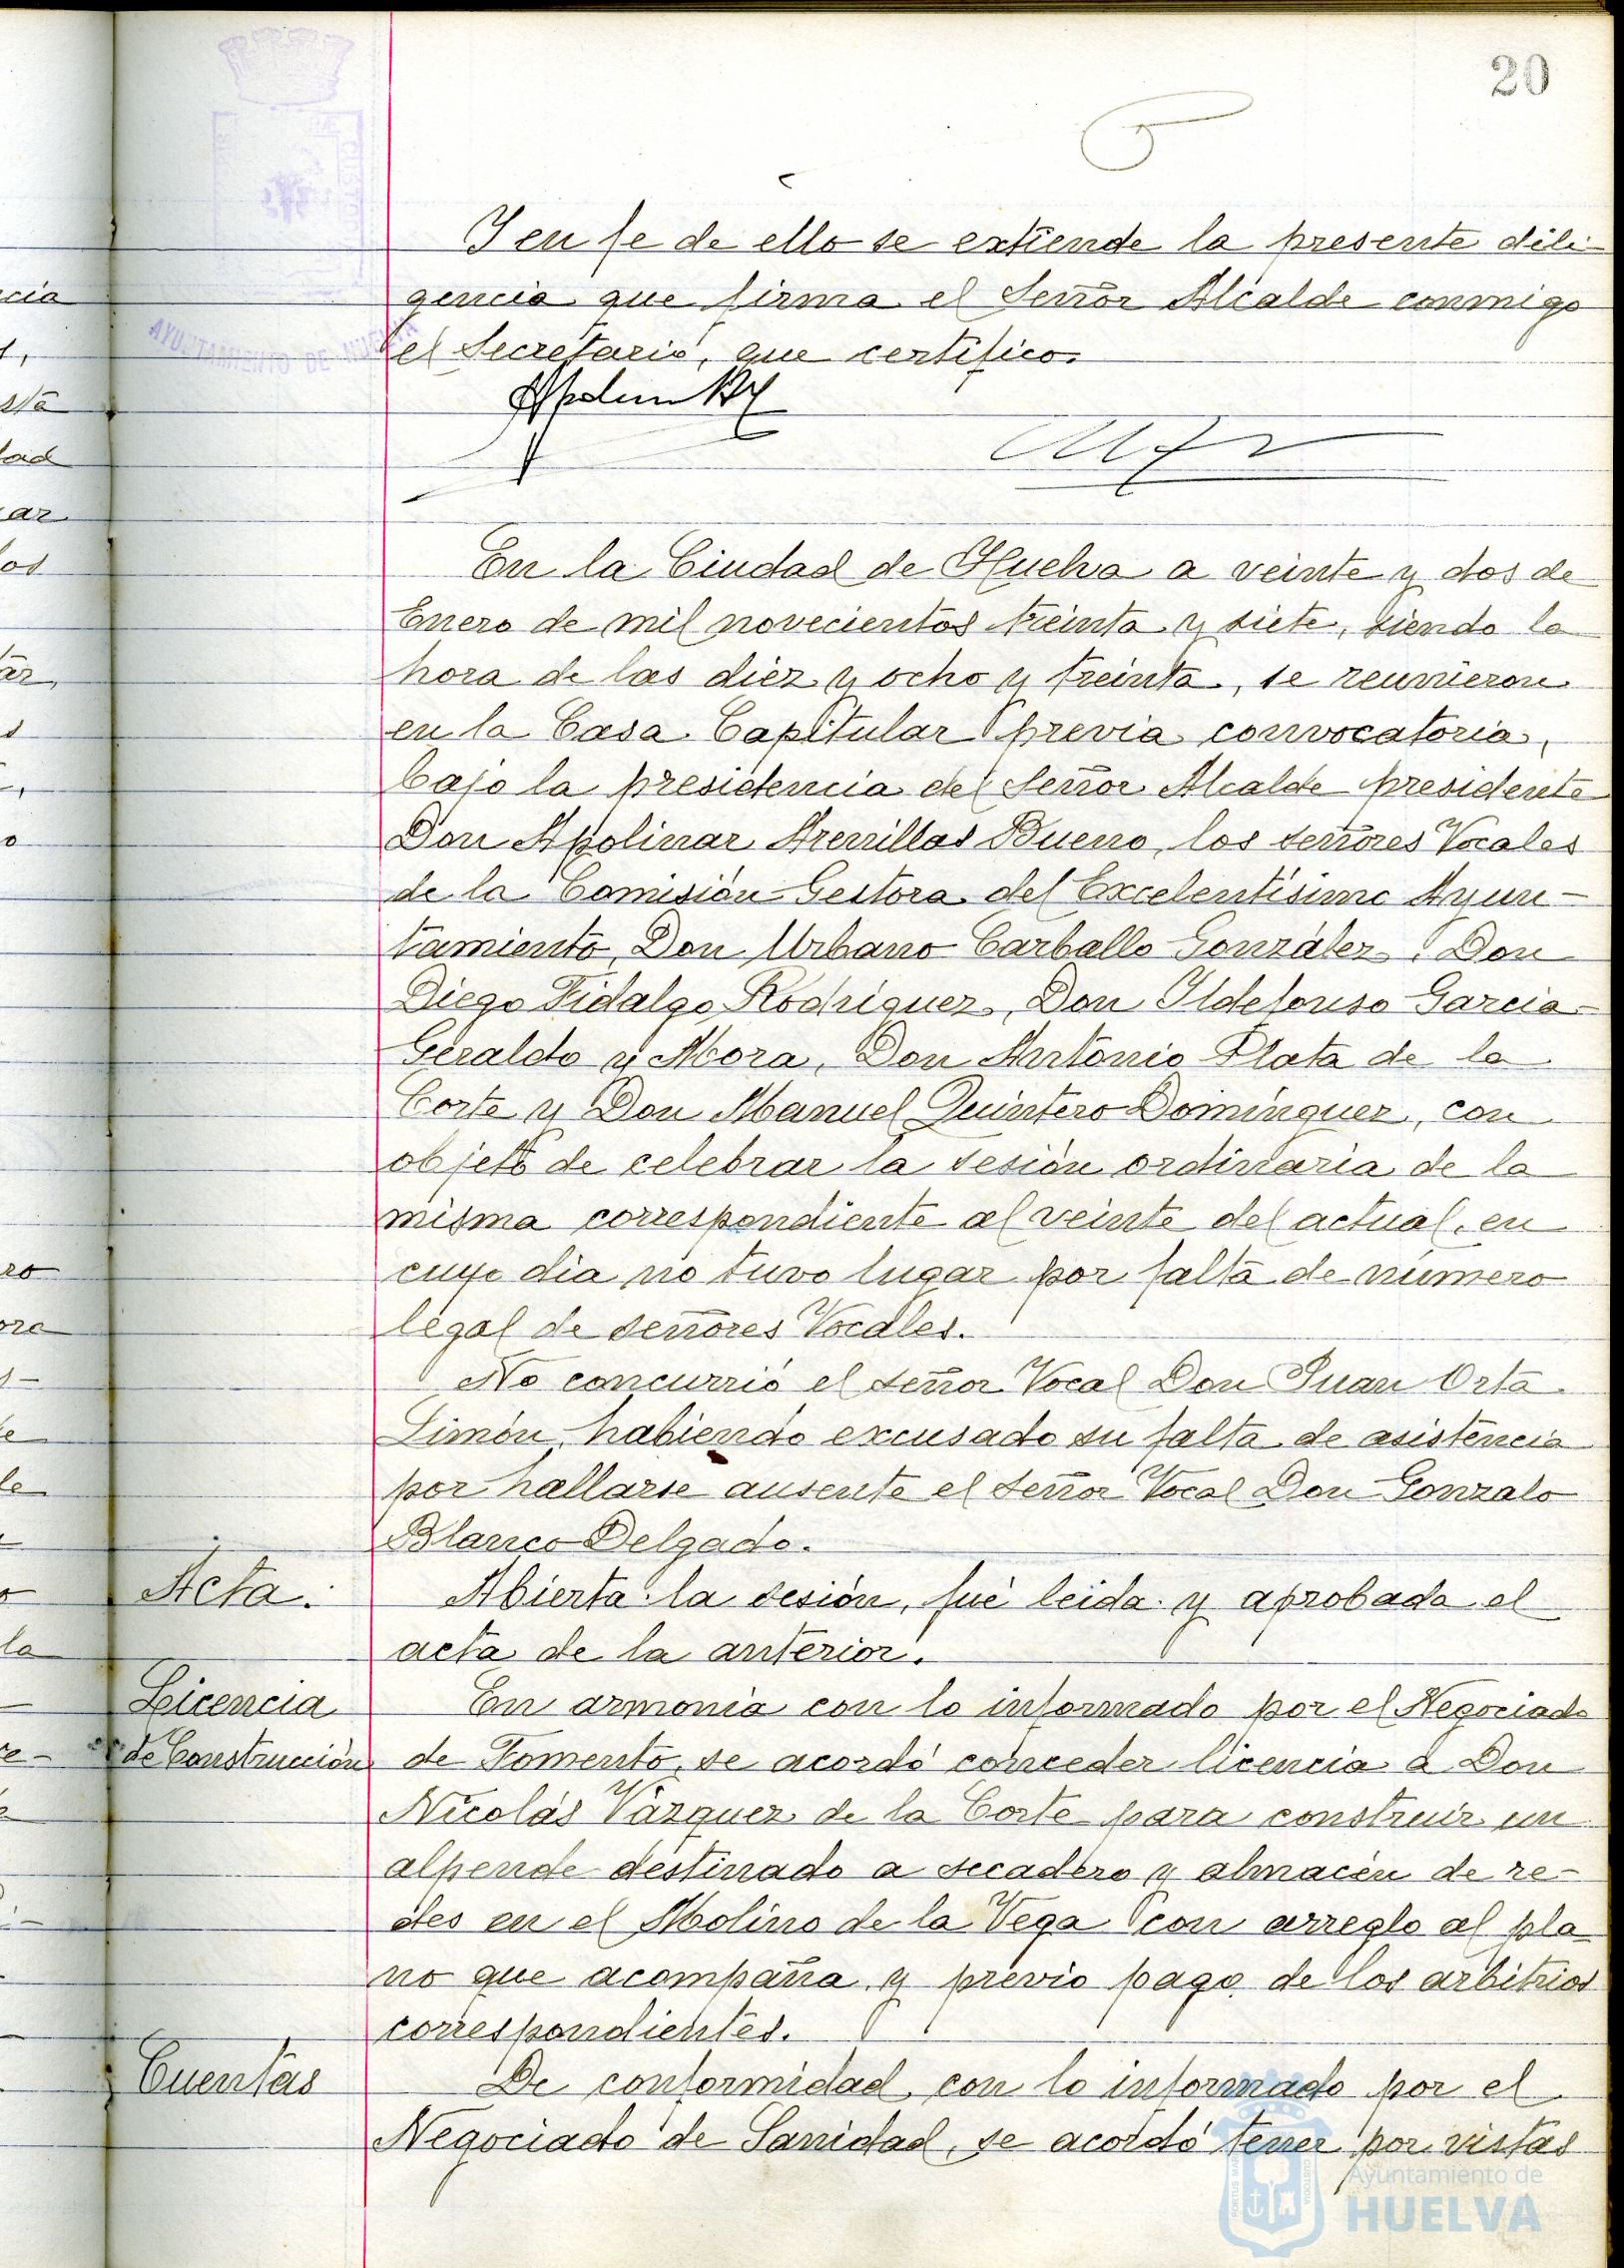 20
Y en fe de ello se extiende la presente dili-
gencia que firma el Señor Alcalde conmigo
el Secretario, que certifico.
AYUNTAMIENTO DE HUELVA
En la Ciudad de Huelva a veinte y dos de
Enero de mil novecientos treinta y siete, siendo la
hora de las diez y ocho y treinta, se reunieron
en la Casa Capitular previa convocatoria,
bajo la presidencia del Señor Alcalde presidente
Don Apolinar Arenillas Bueno, los señores Vocales
de la Comisión Gestora del Excelentísimo Ayun-
tamiento, Don Urbano Carballo González, Don
Diego Fidalgo Rodríguez, Don Ildefonso Garcia-
Geraldo y Mora, Don Antonio Plata de la
Corte y Don Manuel Quintero Domínguez, con
objeto de celebrar la sesión ordinaria de la
misma correspondiente al veinte del actual, en
cuyo dia no tuvo lugar por falta de número
legal de señores Vocales.
No concurrió el señor Vocal Don Juan Orta
Limón, habiendo excusado su falta de asistencia
por hallarse ausente el Señor Vocal Don Gonzalo
Blanco Delgado.
Acta.
Abierta la sesión, fué leida y aprobada el
acta de la anterior.
Licencia
de Construcción
En armonia con lo informado por el Negociado
de Fomento, se acordó conceder licencia a Don
Nicolás Vázquez de la Corte para construir un
alpende destinado a secadero y almacén de re-
des en el Molino de la Vega con arreglo al pla
no que acompaña y previo pago de los arbitrios
correspondientes.
Cuentas
De conformidad con lo informado por el
Negociado de Sanidad, se acordó tener por vistas
Ayuntamiento de
HUELVA